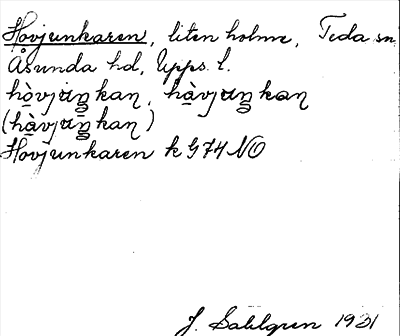 Hovjunkaren, liten holme, Teda sn
Åsunda hd, Upps. l.
hòvjuŋkaɳ, hàvjuŋkaɳ
(hàvjuŋkaɳ)
Hovjunkaren k G74 NO
J. Sahlgren 1931